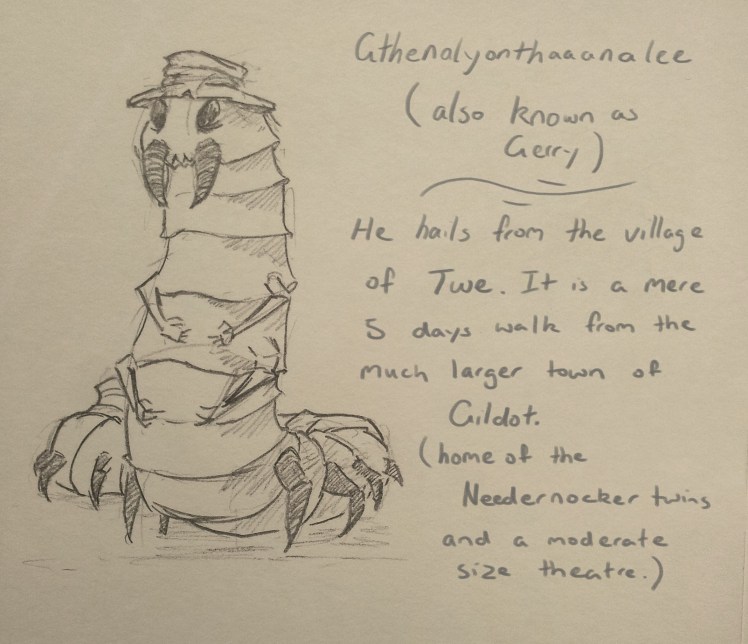 Gthenalyonthaaanalee
(also known as
Gerry)
He hails from the village
of Twe. It is a mere
5 days walk from the
much larger town of
Gildot.
(home of the
Needernocker twins
and a moderate
size theatre.)